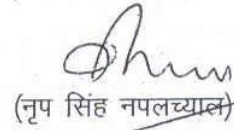 (नृप सिंह नपलच्याल)